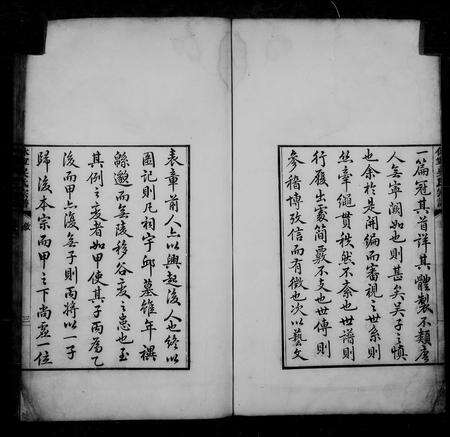 一篇冠其首詳其體製不類唐
人無寧闕如也則甚矣吳子之慎
也余於是開編而審視之世系則
丝牽繩貫秩然不紊也世譜則
行履出處簡覈不支也世傳則
參稽博攷信而有徵也次以藝文
表章前人亦以興起後人也終以
圖記則凡祠宇邱墓雖年禩
緜邈而無陵移谷變之患也至
其例之變者如甲使其子丙為乙
後而甲亦復無子則丙將以一子
歸後本宗而甲之下尚虛一位